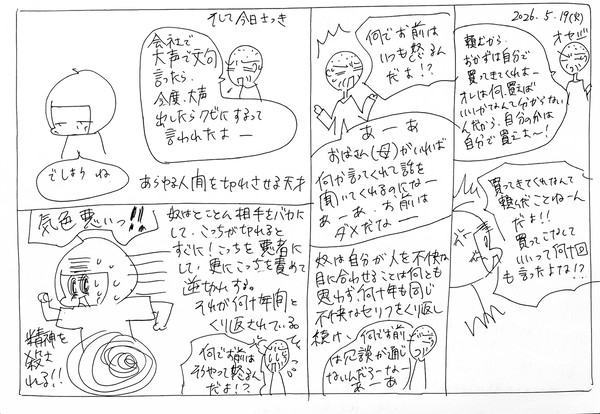 2026.5.19(火)
オヤジ
頼むから、
おかずは自分で
買ってきてくれよー
オレは何、買えば
いいかなんて分からない
んだから、自分のかは
自分で買えよ〜!
買ってきてくれなんて
頼んだことねーん
だよ!!
買ってこなくて
いいって何十回
も言ったよな!?
何でお前は
いつも怒るん
だよ!?
あーあ
おばさん(母)がいれば
何か言ってくれて話を
聞いてくれるのになー
あーあ、お前は
ダメだなー
奴は自分が人を不快な
目に合わせることは何とも
思わず、何十年も同じ
不快なセリフをくり返し
続け、
何でお前
は冗談が通じ
ないんだろーなー
あーあ
そして今日さっき
会社で
大声で文句
言ったら、
今度、大声
出したらクビにするって
言われたよー
でしょうね
あらゆる人間を切れさせる天才
気色悪いっ!!
奴はとことん相手をバカに
して、こっちが切れると
すぐに!こっちを悪者に
して、更にこっちを責めて
逆切れする。
それが何十年間と
くり返されている。
何でお前は
そうやって怒るん
だよ!?
精神を
殺さ
れる!!